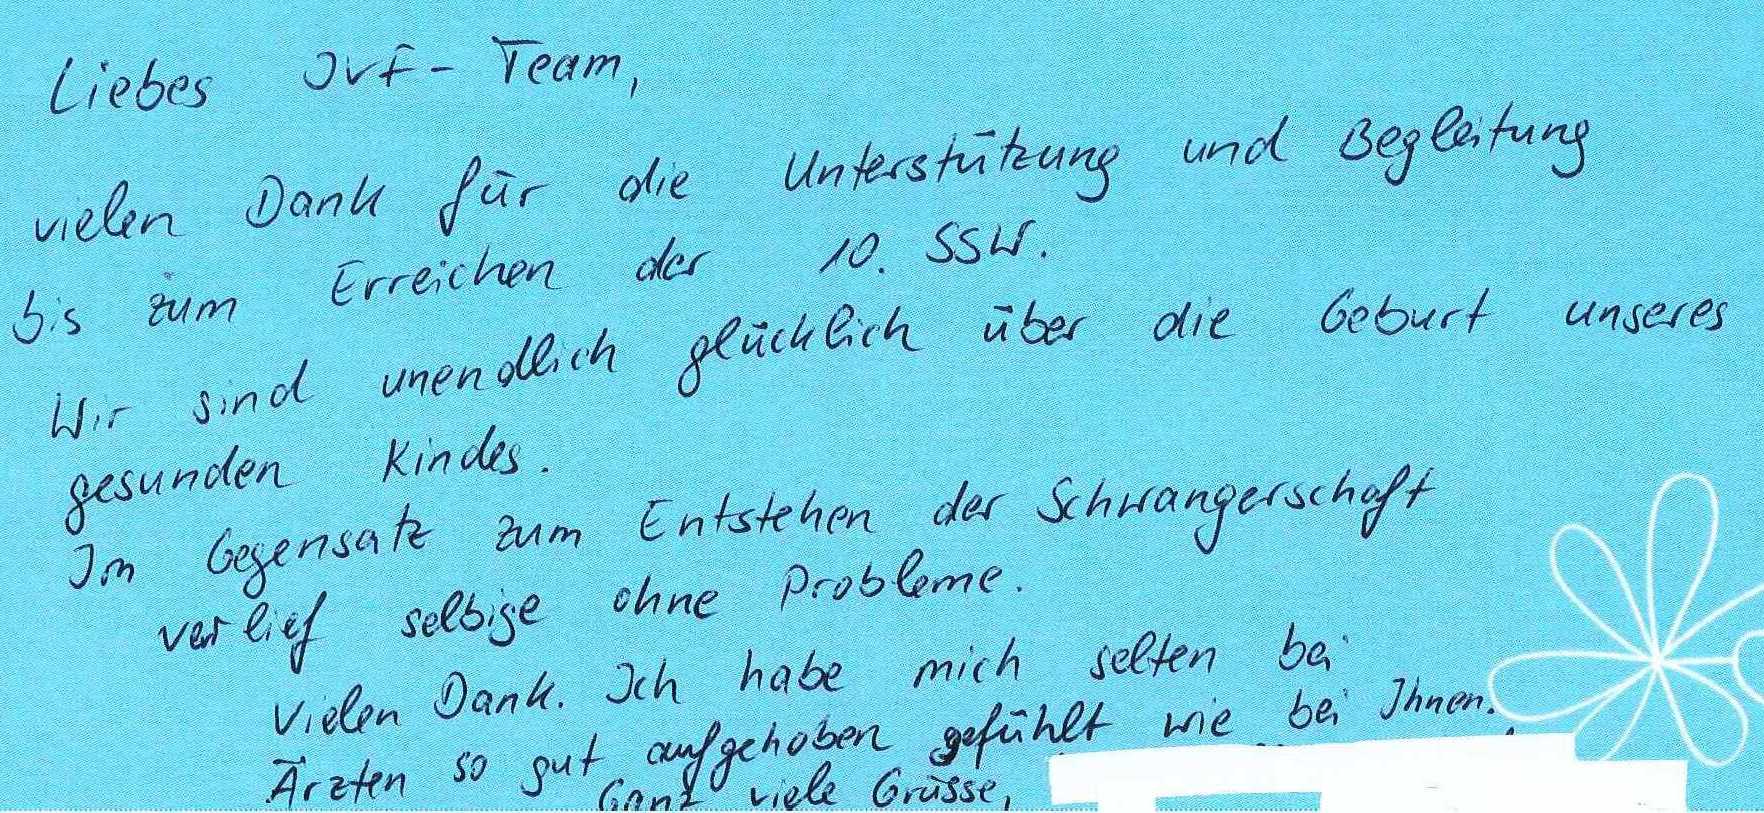 Liebes IVF-Team,
vielen Dank für die Unterstützung und Begleitung
bis zum Erreichen der 10. SSW.
Wir sind unendlich glücklich über die Geburt unseres
gesunden Kindes.
Im Gegensatz zum Entstehen der Schwangerschaft
verlief selbige ohne Probleme.
Vielen Dank. Ich habe mich selten bei
Ärzten so gut aufgehoben gefühlt wie bei Ihnen.
Ganz viele Grüsse,